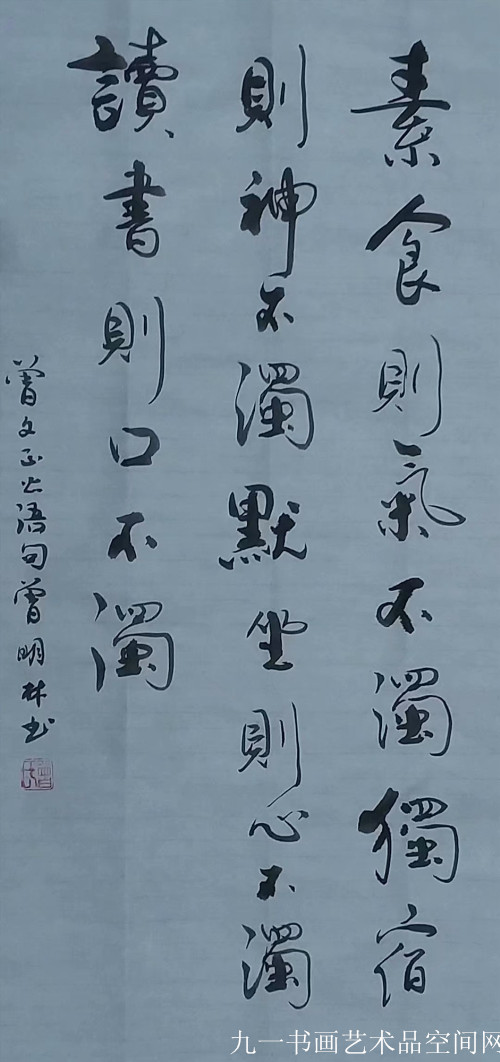 素食則氣不濁獨宿
則神不濁默坐則心不濁
讀書則口不濁
曾文正公語句曾明林書
九一书画艺术品空间网